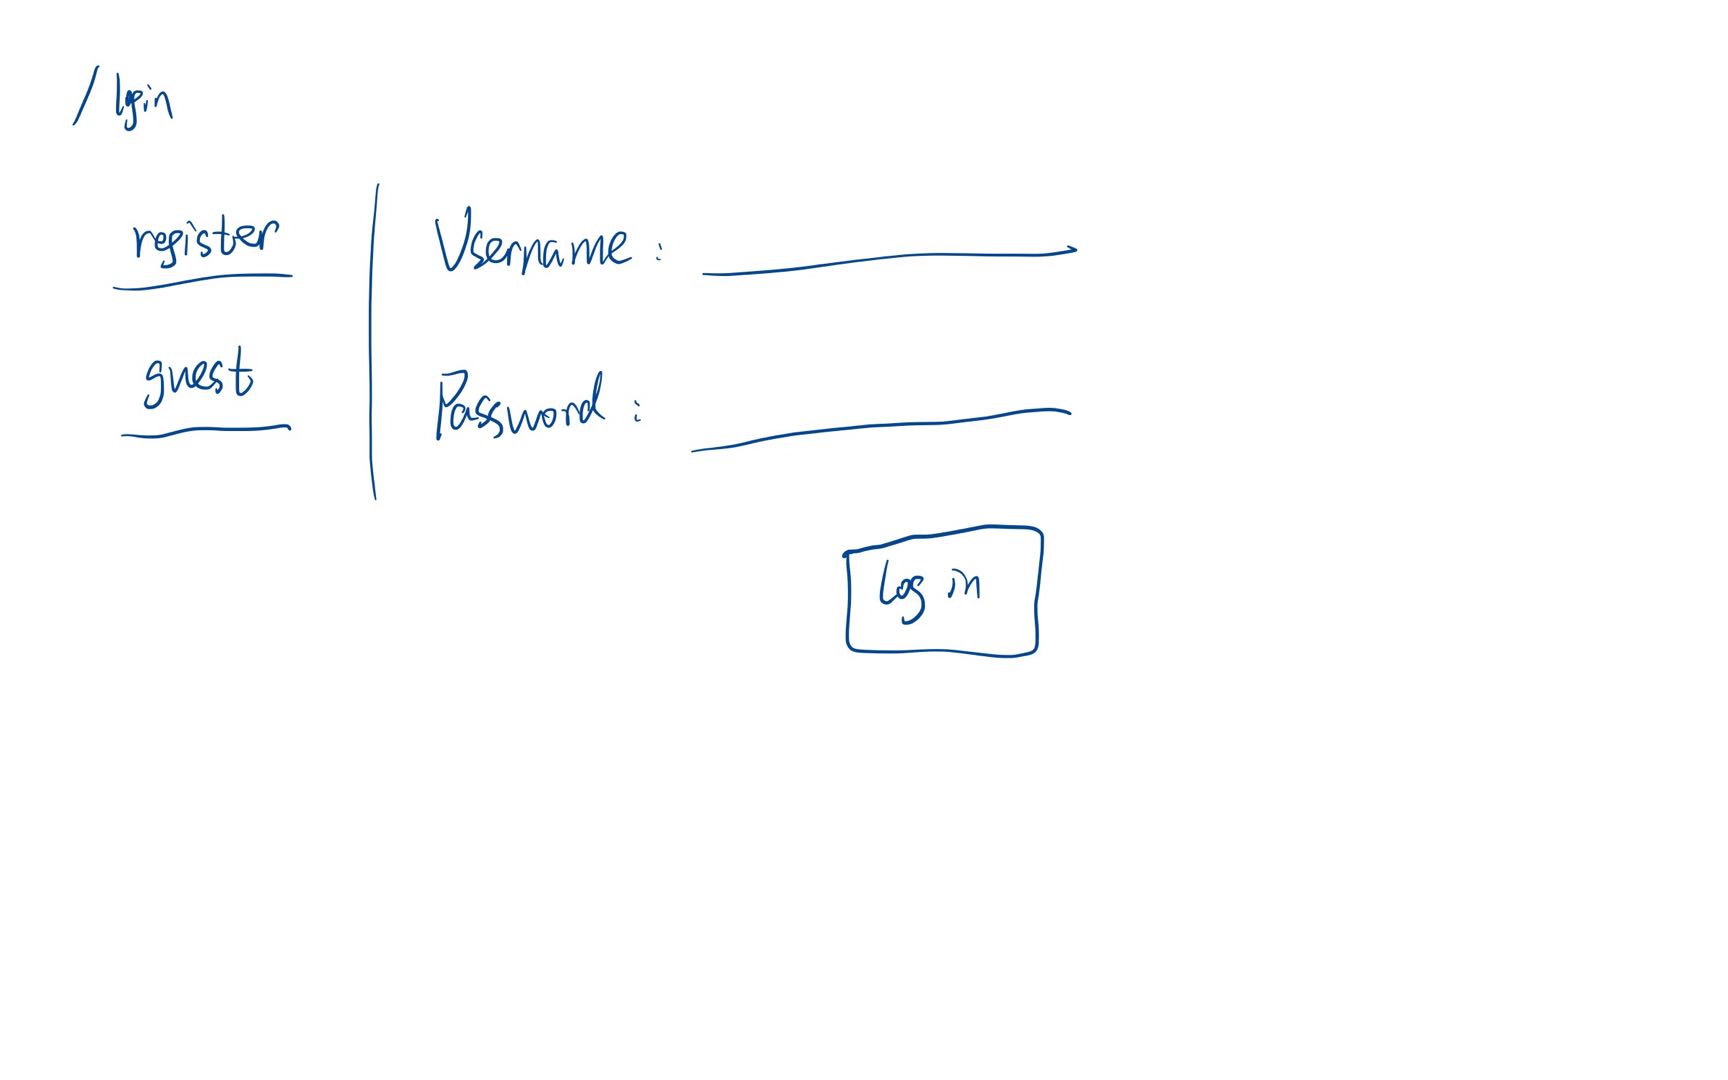 /login
register
guest
Username:
Password:
Log in